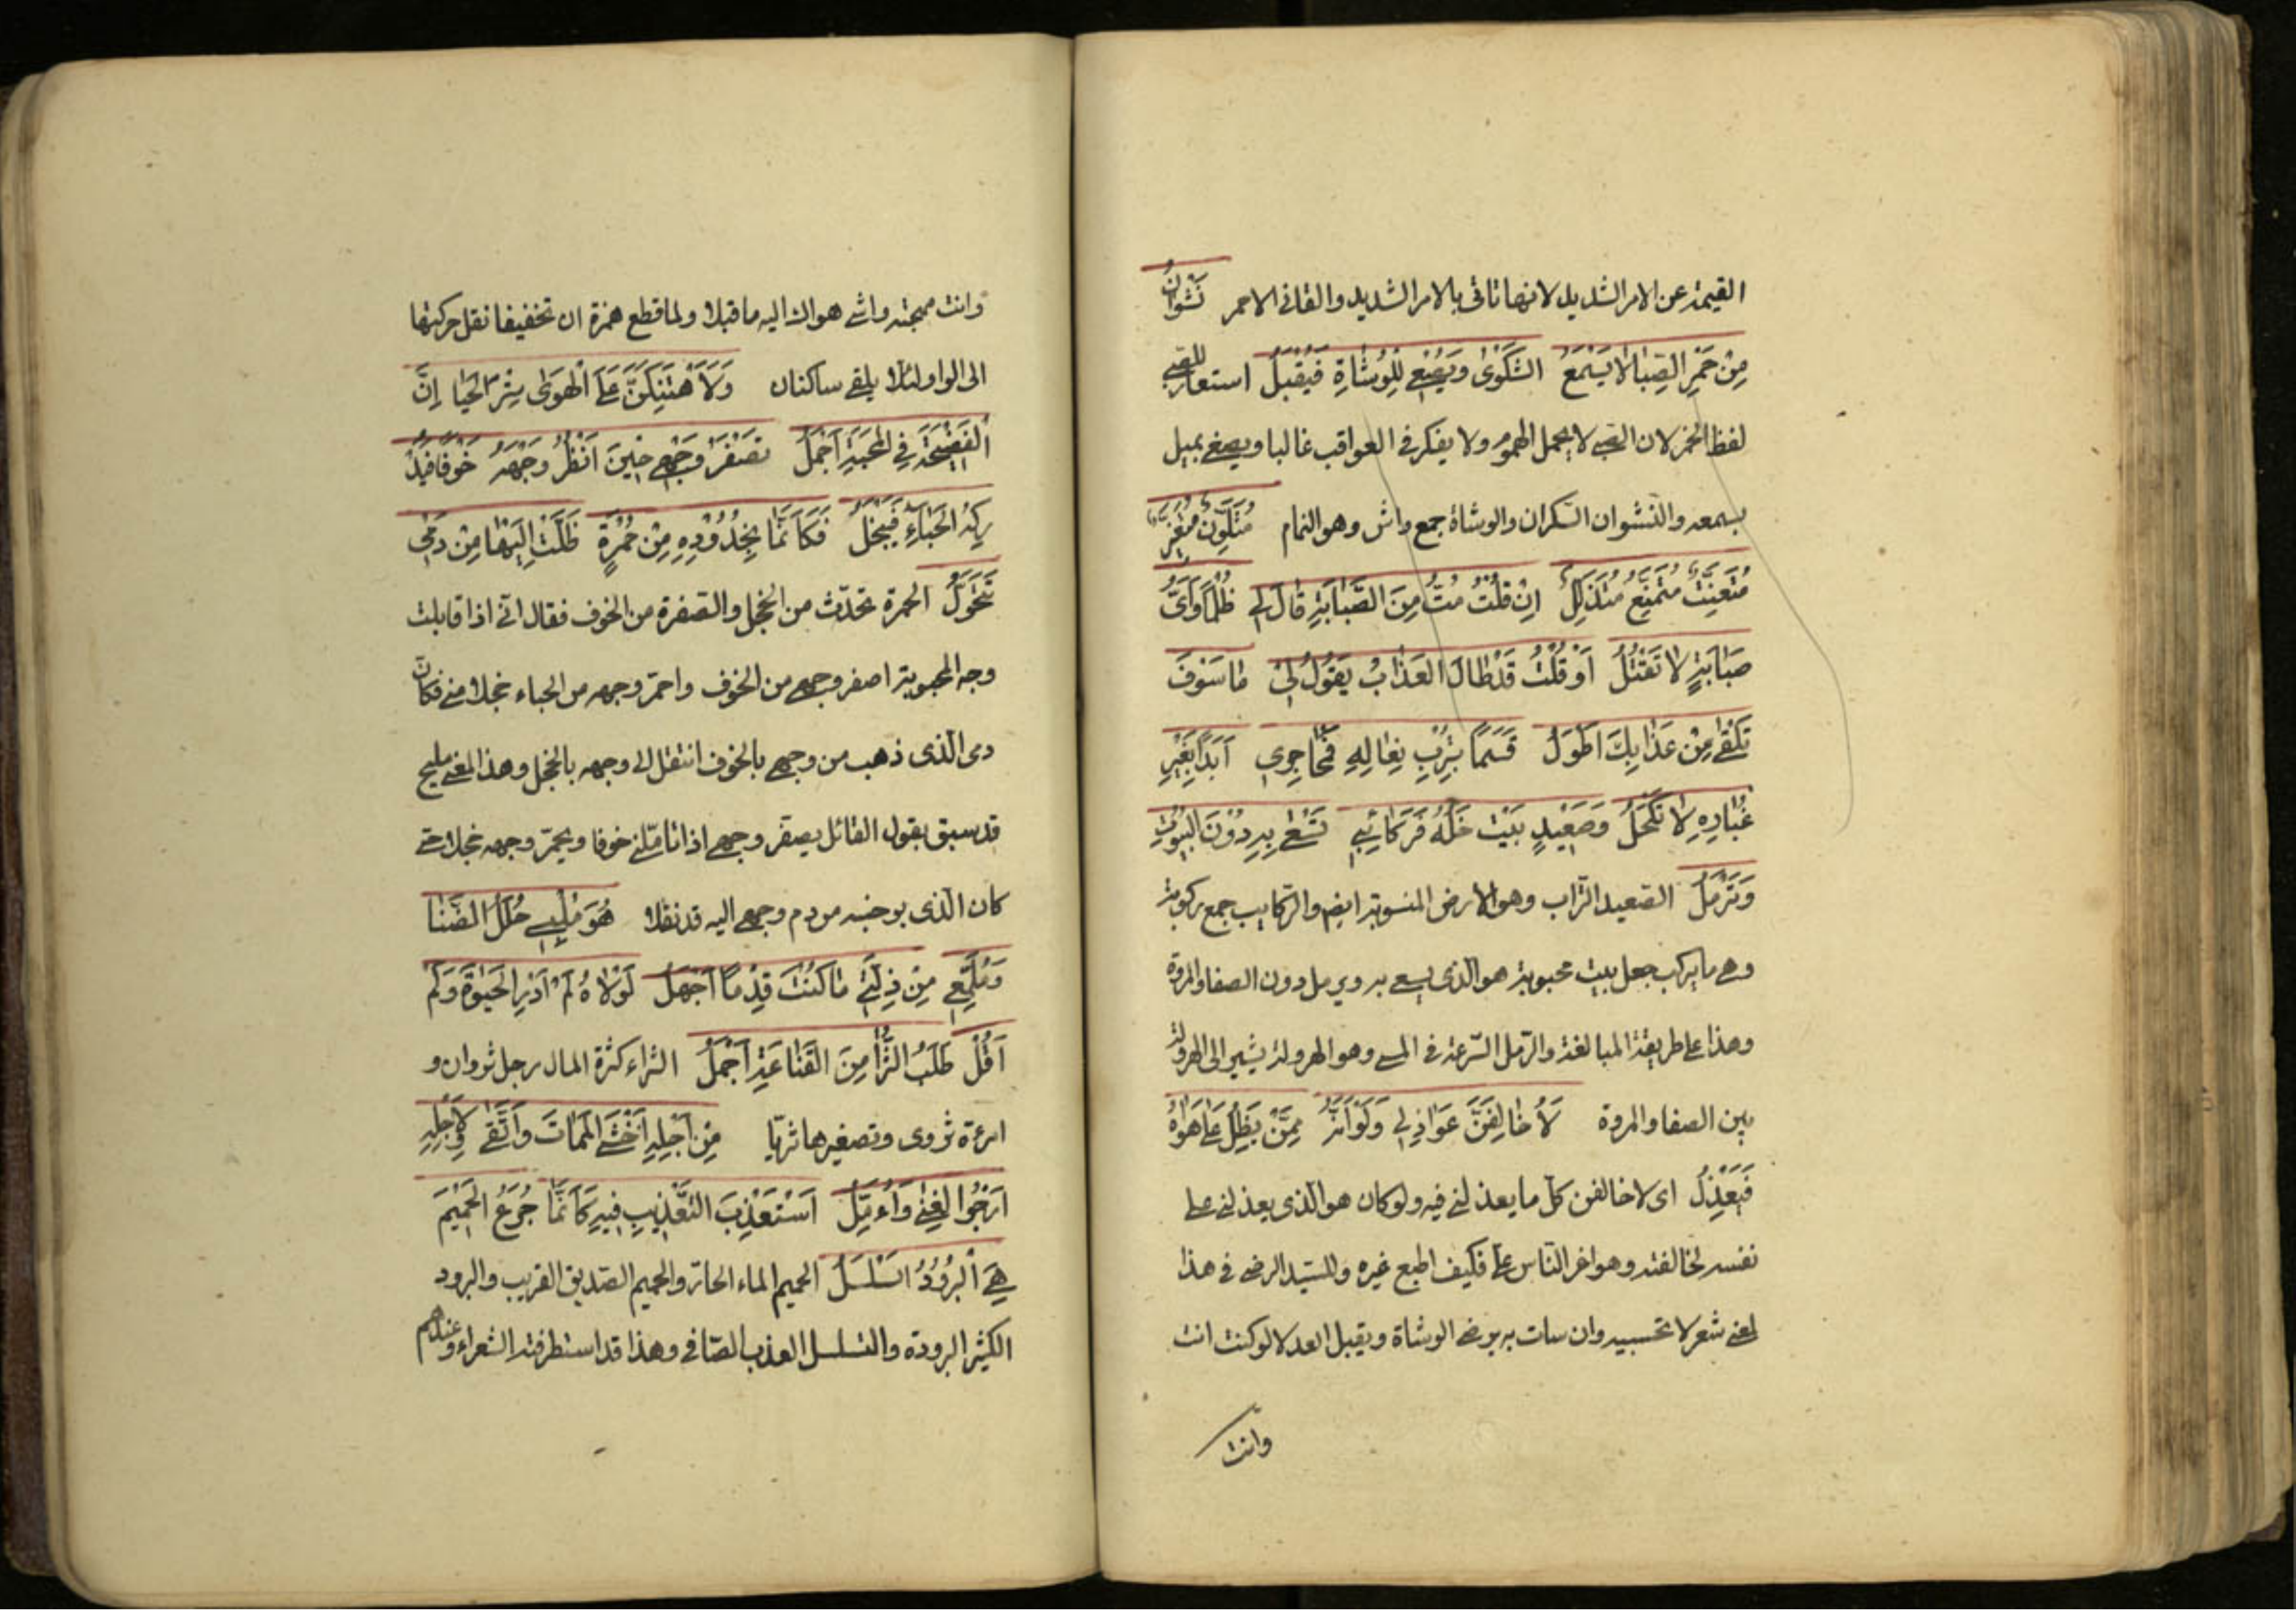 القيمة عن الامر الشديد لانها تاتى بالامر الشديد والقانى الاحمر نَشْوَانُ
مِنْ خَمْرِ الصِّبَا لَا يَسْمَعُ الشَّكْوَى وَيُصْغِي لِلْوُشَاةِ فَيُقْبِلُ استعار للصبى
لفظ الخمر لان الصبى لا يحمل الهموم ولا يفكر فى العواقب غالبا ويصغى يميل
بسمعه والنشوان السكران والوشاة جمع واش وهو النمام مُتَلَوِّنٌ مُتَغَيِّرٌ
مُتَعَنِّتٌ مُتَمَنِّعٌ مُتَدَلِّلُ اِنْ قُلْتُ مُتُّ مِنَ الصَّبَابَةِ قَالَ لِي ظُلْمًا وَاَيُّ
صَبَابَةٍ لَا تَقْتُلُ اَوْ قُلْتُ قَدْ طَالَ الْعَذَابُ يَقُولُ لِي مَا سَوْفَ
تَلْقَى مِنْ عَذَابِكَ اَطْوَلُ قَسَمًا بِتُرْبِ نِعَالِهِ فَمَحَاجِرِي اَبَدًا بِغَيْرِ
غُبَارِهِ لَا تُكْحَلُ وَصَعِيدِ بَيْتٍ حَلَّهُ فَرَكَائِبِي تَسْعَى بِهِ دُونَ الْبُيُوتِ
وَتَرْمُلُ الصعيد التراب وهو الارض المستوية ايضا والركايب جمع ركوبة
وهى ما يركب جعل بيت محبوبته هو الذى يسعى به ويرمل دون الصفا والمروة
وهذا على طريقة المبالغة والرمل السرعة فى المشى وهو الهرولة يشير الى الهرولة
بين الصفا والمروة لَاُخَالِفَنَّ عَوَاذِلِي وَلَوْ اَنَّهُ مِمَّنْ يَظَلُّ عَلَى هَوَاهُ
فَيَعْذِلُ اى لاخالفن كل ما يعذلنى فيه ولو كان هو الذى يعذلنى على
نفسه لخالفته وهو اعز الناس على فكيف اطيع غيره وللسيد الرضى فى هذا
المعنى شعر لا تحسبيه وان سات به يرضى الوشاة ويقبل العذلا لو كنت انت
وانت
وانت مهجته واشى هواك اليه ما قبلا ولما قطع همزة ان تخفيفا نقل حركتها
الى الواو لئلا يلتقى ساكنان وَلَاَهْتِكَنَّ عَلَى الْهَوَى سِتْرَ الْحَيَا اِنَّ
الْفَضِيحَةَ فِي الْمَحَبَّةِ اَجْمَلُ تَصْفَرُّ وَجْهِي حِينَ اَنْظُرُ وَجْهَهُ خَوْفًا فَيُدْ
رِكُهُ الْحَيَاءُ فَيَخْجَلُ فَكَاَنَّمَا بِخُدُودِهِ مِنْ حُمْرَةٍ ظَلَّتْ اِلَيْهَا مِنْ دَمِي
تَتَحَوَّلُ الحمرة تحدث من الخجل والصفرة من الخوف فقال انى اذا قابلت
وجه المحبوبة اصفر وجهى من الخوف واحمر وجهه من الحياء خجلا منى فكان
دمى الذى ذهب من وجهى بالخوف انتقل الى وجهه بالخجل وهذا المعنى مليح
قد سبق بقول القائل يصفر وجهى اذا تاملنى خوفا ويحمر وجهه خجلا حتى
كان الذى بوجنته من دم وجهى اليه قد نقلا هُوَ مُلْبِسِي حُلَلَ الضَّنَا
وَمُلَمِّعِي مِنْ ذِلَّتِي مَا كُنْتُ قِدْمًا اَجْهَلُ لَوْلَاهُ لَمْ اَذُرِ الْحَيٰوةَ وَلَمْ
اَقُلْ طَلَبُ الثَّرَا مِنَ الْقَنَاعَةِ اَجْمَلُ الثراء كثرة المال رجل ثروان و
امرءة ثروى وتصغيرها ثريا مِنْ اَجْلِهِ اَخْشَى الْمَمَاتَ وَاَتَّقِي لِاَجْلِهِ
اَرْجُوا الْغِنَى وَاُءَمِّلُ اَسْتَعْذِبُ التَّعْذِيبَ فِيهِ كَاَنَّمَا جُرَعُ الْحَمِيمِ
هِيَ الْبَرُودُ السَّلْسَلُ الحميم الماء الحار والحميم الصديق القريب والبرود
الكثير البرودة والسلسل العذب الصافى وهذا قد استطرفته الشعراء وعندهم